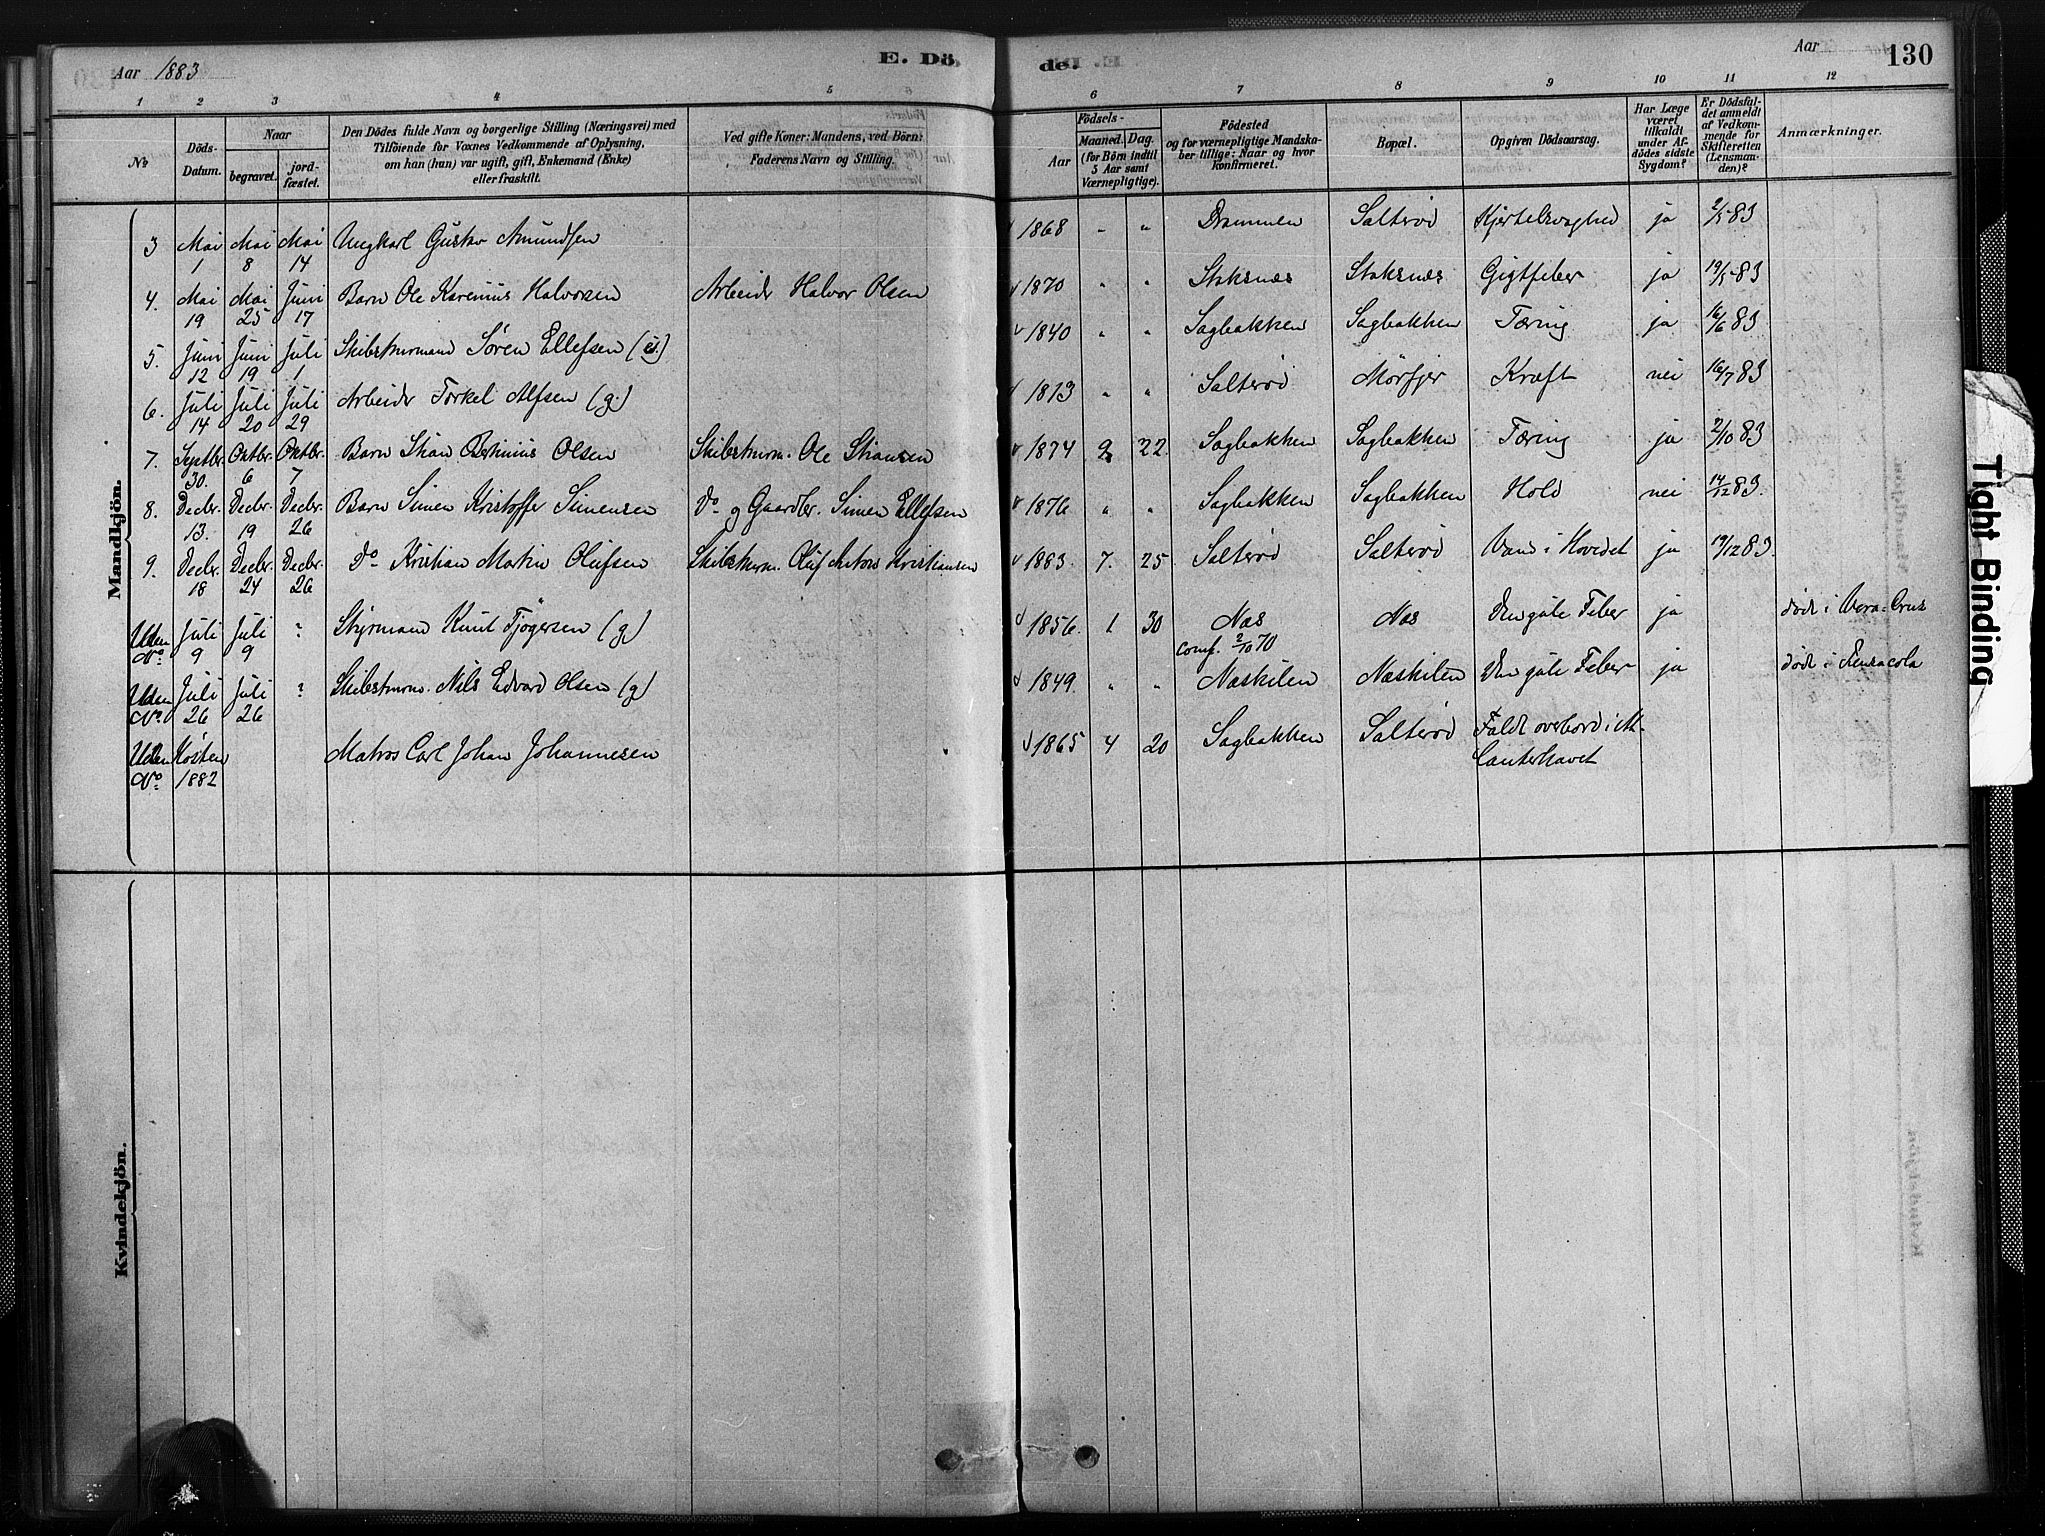 Aar 1883
E. Dö
de.
Aar
130
1 2 3 4 5
6 7 8 9 10 11 12
№
Döds-Datum.
Naar
begravet.
jord-fæstet.
Den Dödes fulde Navn og borgerlige Stilling (Næringsvei) med
Tilföiende for Voxnes Vedkommende af Oplysning,
om han (hun) var ugift, gift, Enkemand (Enke)
eller fraskilt.
Ved gifte Koner: Mandens, ved Börn:
Faderens Navn og Stilling.
Födsels-
Aar
Maaned. Dag.
(for Börn indtil
5 Aar samt
Værnepligtige).
Födested
og for værnepligtige Mandska-
ber tillige: Naar og hvor
konfirmeret.
Bopæl.
Opgiven Dödsaarsag.
Har Læge
været
tilkaldt
under Af-
dödes sidste
Sygdom?
Er Dödsfal-
det anmeldt
af Vedkom-
mende for
Skifteretten
(Lensman-
den)?
Anmærkninger.
Mandkjön.
3 Mai 1 Mai 8 Mai 14 Ungkarl Gustav Amundsen 1868 " " Drammen Salterød Kjertelsvaghed ja 2/5 83
4. Mai 19 Mai 25 Juni 17 Barn Ole Karenius Halvorsen Arbeider Halvor Olsen 1870 " " Staksnæs Staksnæs Gigtfeber ja 19/5 83
5. Juni 12 Juni 19 Juli 1 Skibsturmand Søren Ellefsen 1840 " " Sagbakken Sagbakken Tæring ja 16/6 83
6. Juli 14 Juli 20 Juli 29 Arbeider Torkel Alfsen (g.) 1813 " " Salterød Mørfjær Kræft nei 16/7 83
7. Septbr. 30. Oktbr. 6 Oktbr. 7 Barn Olsen Skibsturm. Ole 1874 9 22 Sagbakken Sagbakken Tæring ja 2/10 83
8. Decbr. 13. Decbr. 19 Decbr. 26 Barn Simen Kristoffer Simensen Do og Gaardbr. Simen Ellefsen 1876 " " Sagbakken Sagbakken Hold nei 14/12 83.
9. Decbr. 18 Decbr. 24 Decbr. 26 Do Kristian Martin Olufsen Skibsturm. Oluf Kristiansen 1883 7. 25 Salterød Salterød Vand i Hovedet ja 19/12 83.
Uden No. Juli 9 Juli 9 ? Styrmand Knut Tjøgersen (g) 1856. 1 30 Næs Næs Den gule Feber ja død i Vera-Cruz
conf. 2/10 70
Uden No. Juli 26 Juli 26 ? Skibsturm. Nils Edvard Olsen (g) 1849. " " Næskilen Næskilen Den gule Feber ja død i Pensacola
Uden No. Høsten 1882 Matros Carl Johan Johannesen 1865 4 20 Sagbakken Salterød Faldt overbord i At-
lanterhavet
Kvindekjön.
Tight Binding